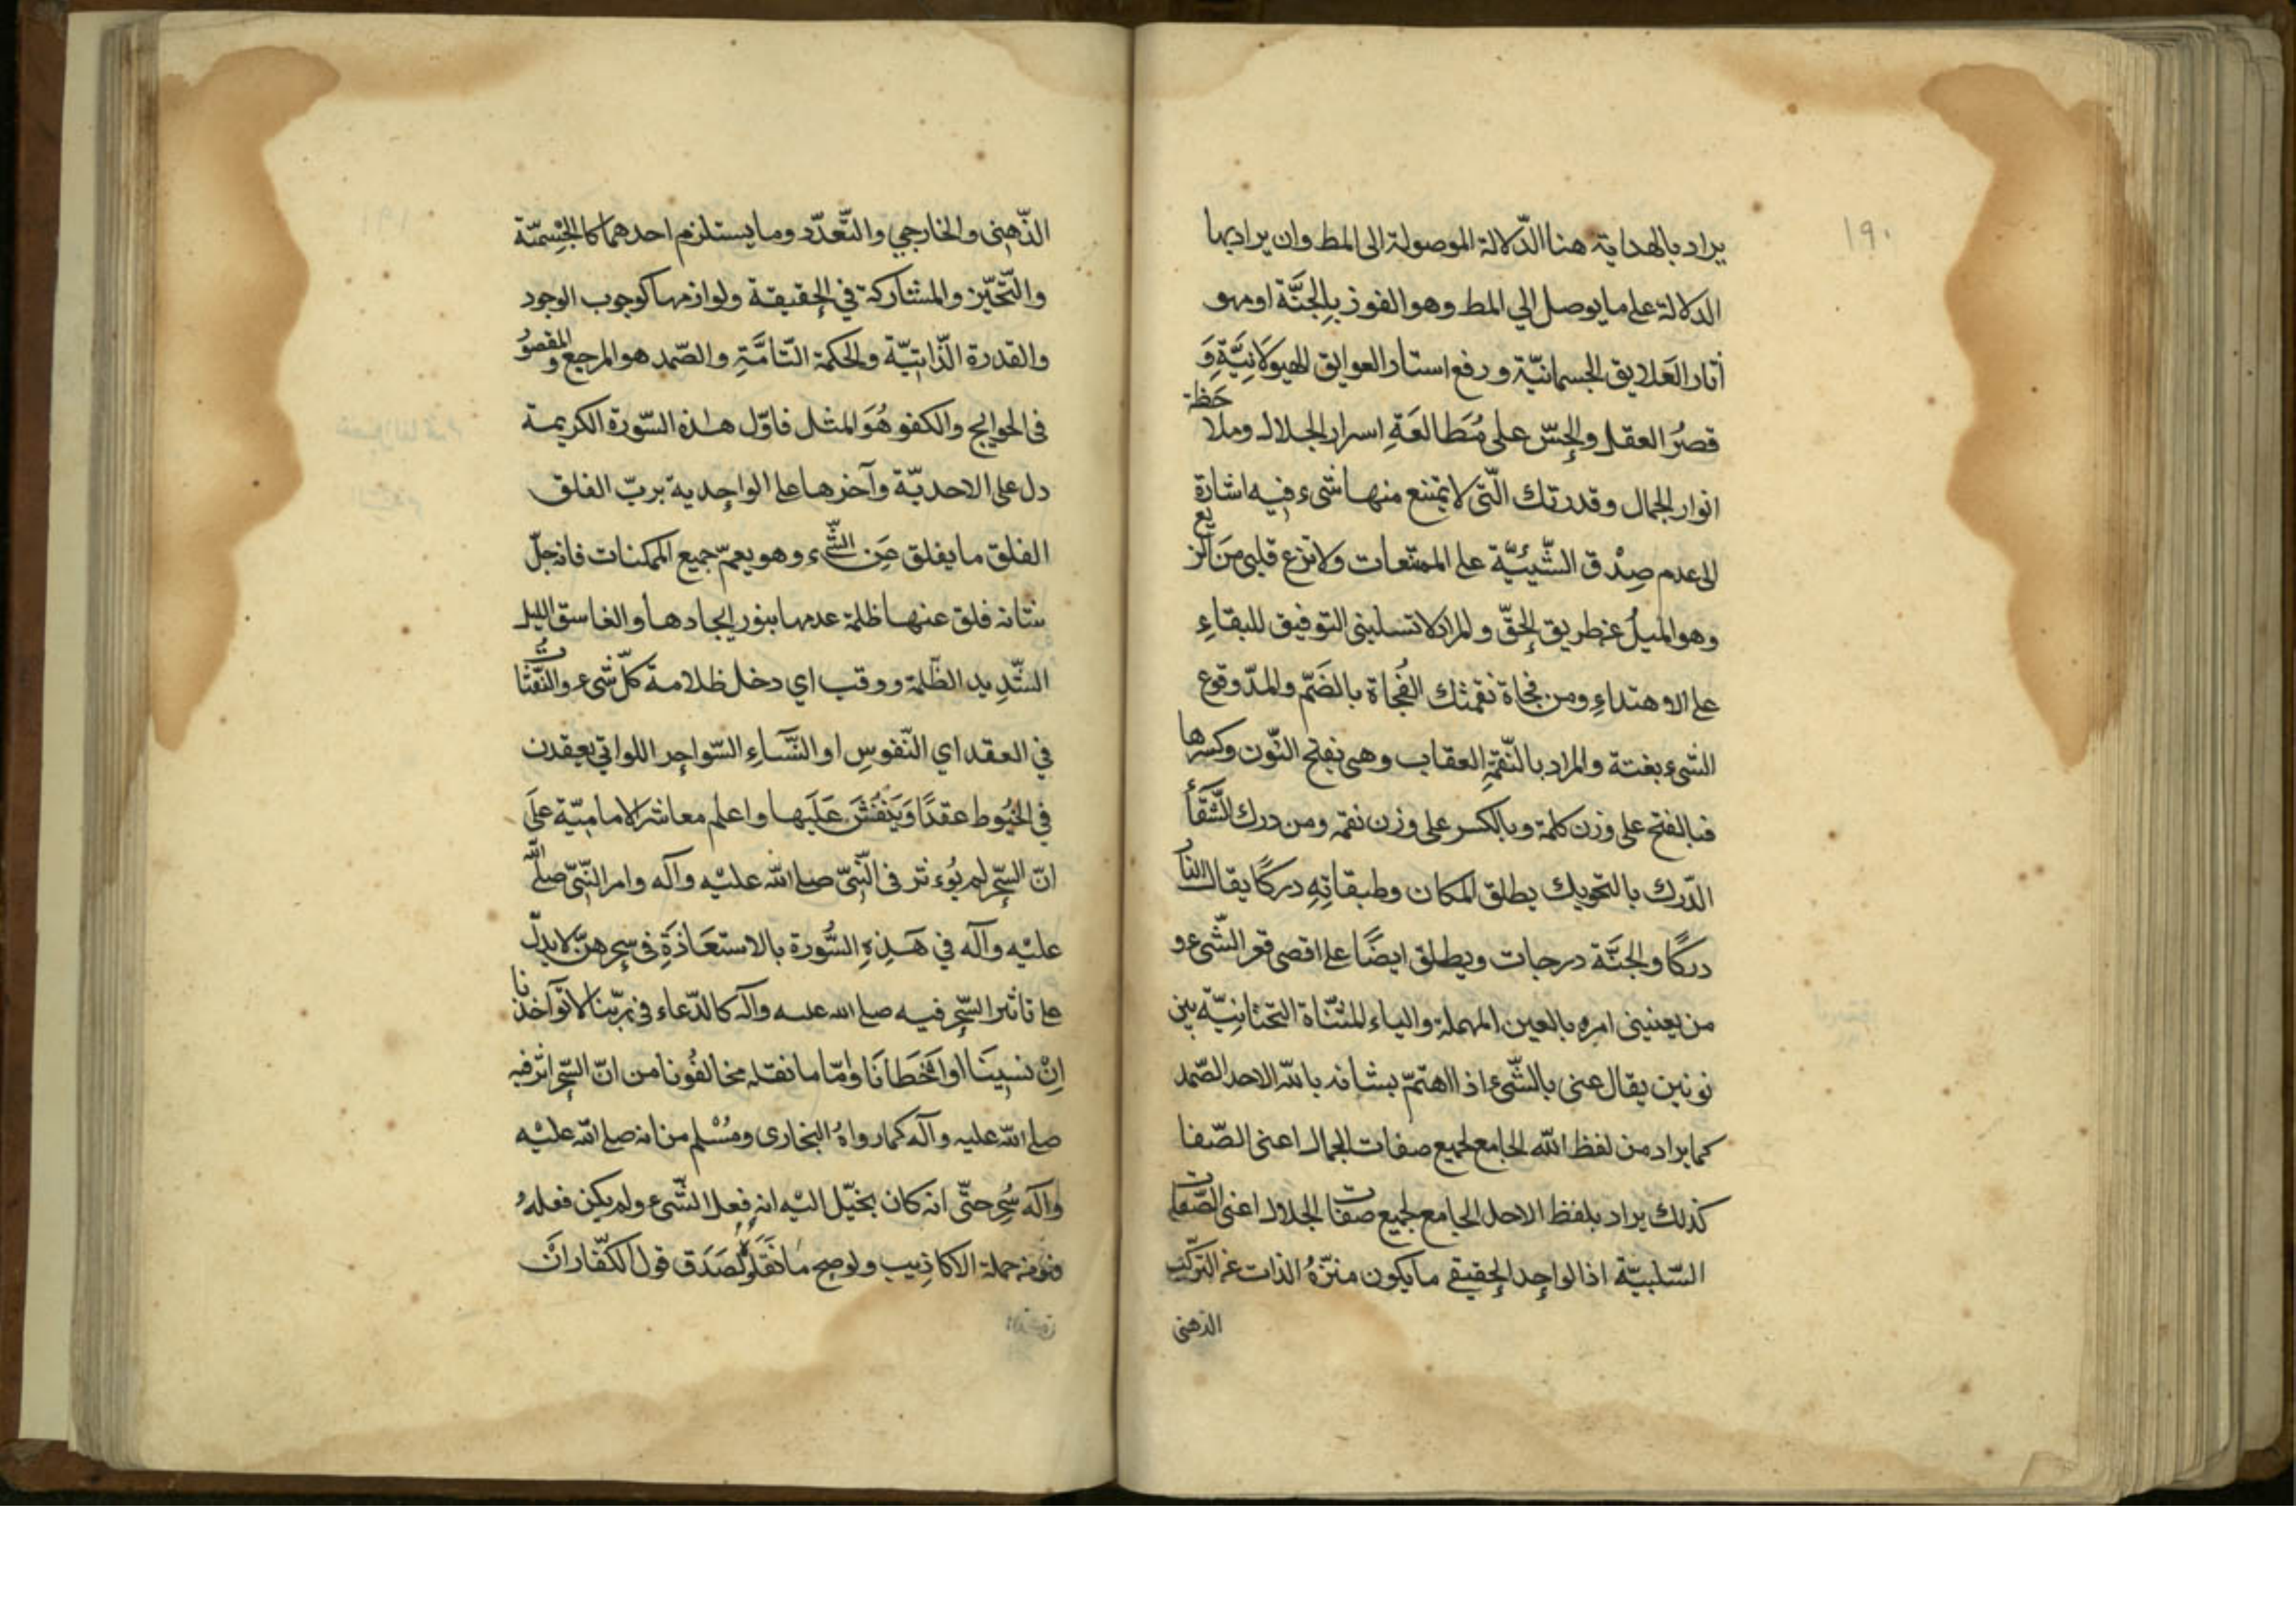 ١٩٠
يراد بالهداية هنا الدّلالة الموصولة الى المط وان يراد بها
الدلالة على ما يوصل الي المط وهو الفوز بالجنَّة او محو
آثار العَلايق الجسمانيّة ورفع استار العوايق الهيولَانِيَّةِ وَ
قصرُ العقل والحِسّ على مُطَالعَةِ اسرار الجلال وملاحَظة
انوار الجمال وقدرتك الّتى لا يمتنع منها شىء فيه اشارة
الى عدم صِدْق الشّيئيّة على الممتنعات ولا تزع قلبى مِنَ الزيع
وهو الميلُ عن طريق الحقّ والمراد لا تسلبنى التوفيق للبقاءِ
على الاهتداءِ ومن فجاة نقمتك الفُجاة بالضَمّ والمدّ وقوع
الشىء بغتة والمراد بالنّقمةِ العقاب وهى بفتح النّون وكسرها
فبالفتح على وزن كلمة وبالكسر على وزن نقمه ومن درك الشَّقَأ
الدّرك بالتحويك يطلق المكان وطبقاتِهِ دركًا يقال النار
دركًا والجنَّة درجات ويطلق ايضًا على اقصى قعر الشّىء و
من يعنينى امره بالعين المهملة والياء المثنّاة التحتانِيّة بين
نونين يقال عنى بالشّىء اذا اهتمّ بشانه بالله الاحد الصّمد
كما يراد من لفظ الله الجامع لجميع صفات الجمال اعنى الصّفا
كذلك يراد بلفظ الاحد الجامع لجميع صفات الجلال اعنى الصّفات
السّلبيّة اذ الواحِد الحِقيقے ما يكون منزّهُ الذات عن التركّب
الذهنى
١٩١
الذّهنِى والخارجي والتَّعدّد وما يستلزم احدهما كالجِسْميّة
والتّحيّز والمشاركة في الحِقيقة ولوازمها كوجوب الوجود
والقدرة الذّاتيّة والحكمة التّامَّةِ والصّمد هو المرجع والمقصوُ
فى الحوايج والكفو هُوَ المثل فاوّل هذه السّورة الكريمة
دل على الاحديّة وآخرها على الواحِدية بربّ الفلق
الفلق ما يفلق عَنِ الشّىء وهو يعمّ جميع الممكنات فانه جلّ
شانه فلق عنها ظلمة عدمها بنور ايجادها والغاسق الليل
الشّدِيد الظّلمة ووقب اي دخل ظلامه كلّ شىء والنّفّثات
في العقد اي النّفوسِ او النّسَاءِ السّواحِر اللواتي يعقدن
في الخيُوط عقدًا وَيَنْفُثنَ عَلَيها واعلم معاشر الامامِيّة عَلَى
انّ السِّحر لم يُوءثر فى النّبِىّ صلى الله عليْه وآله وامر النّبىّ صلى الله
عليْه وآله في هَذِهِ السُّورة بالاستعَاذَةِ فى سِحرهنّ لا يدلّ
على تاثير السِّحر فيه صلى الله عليه وآله كالدّعاء فى ربّنا لا تؤآخذنا
اِنْ نسِينَا او اَخْطَانَا وامّا ما نقله مخالفُونا من انّ السِّحر اثر فيه
صلى الله عليه وآله كما رواهُ البخارى ومُسْلم من انه صلى الله عليْه
وآله سُحِر حتّى انه كان يخيّل اليْه انه فِعل الشّىء ولم يكن فعلهُ
جملة الاكاذِيب ولو صح مَا نَقَلُوهُ لصَدَق قول الكفّار انَ